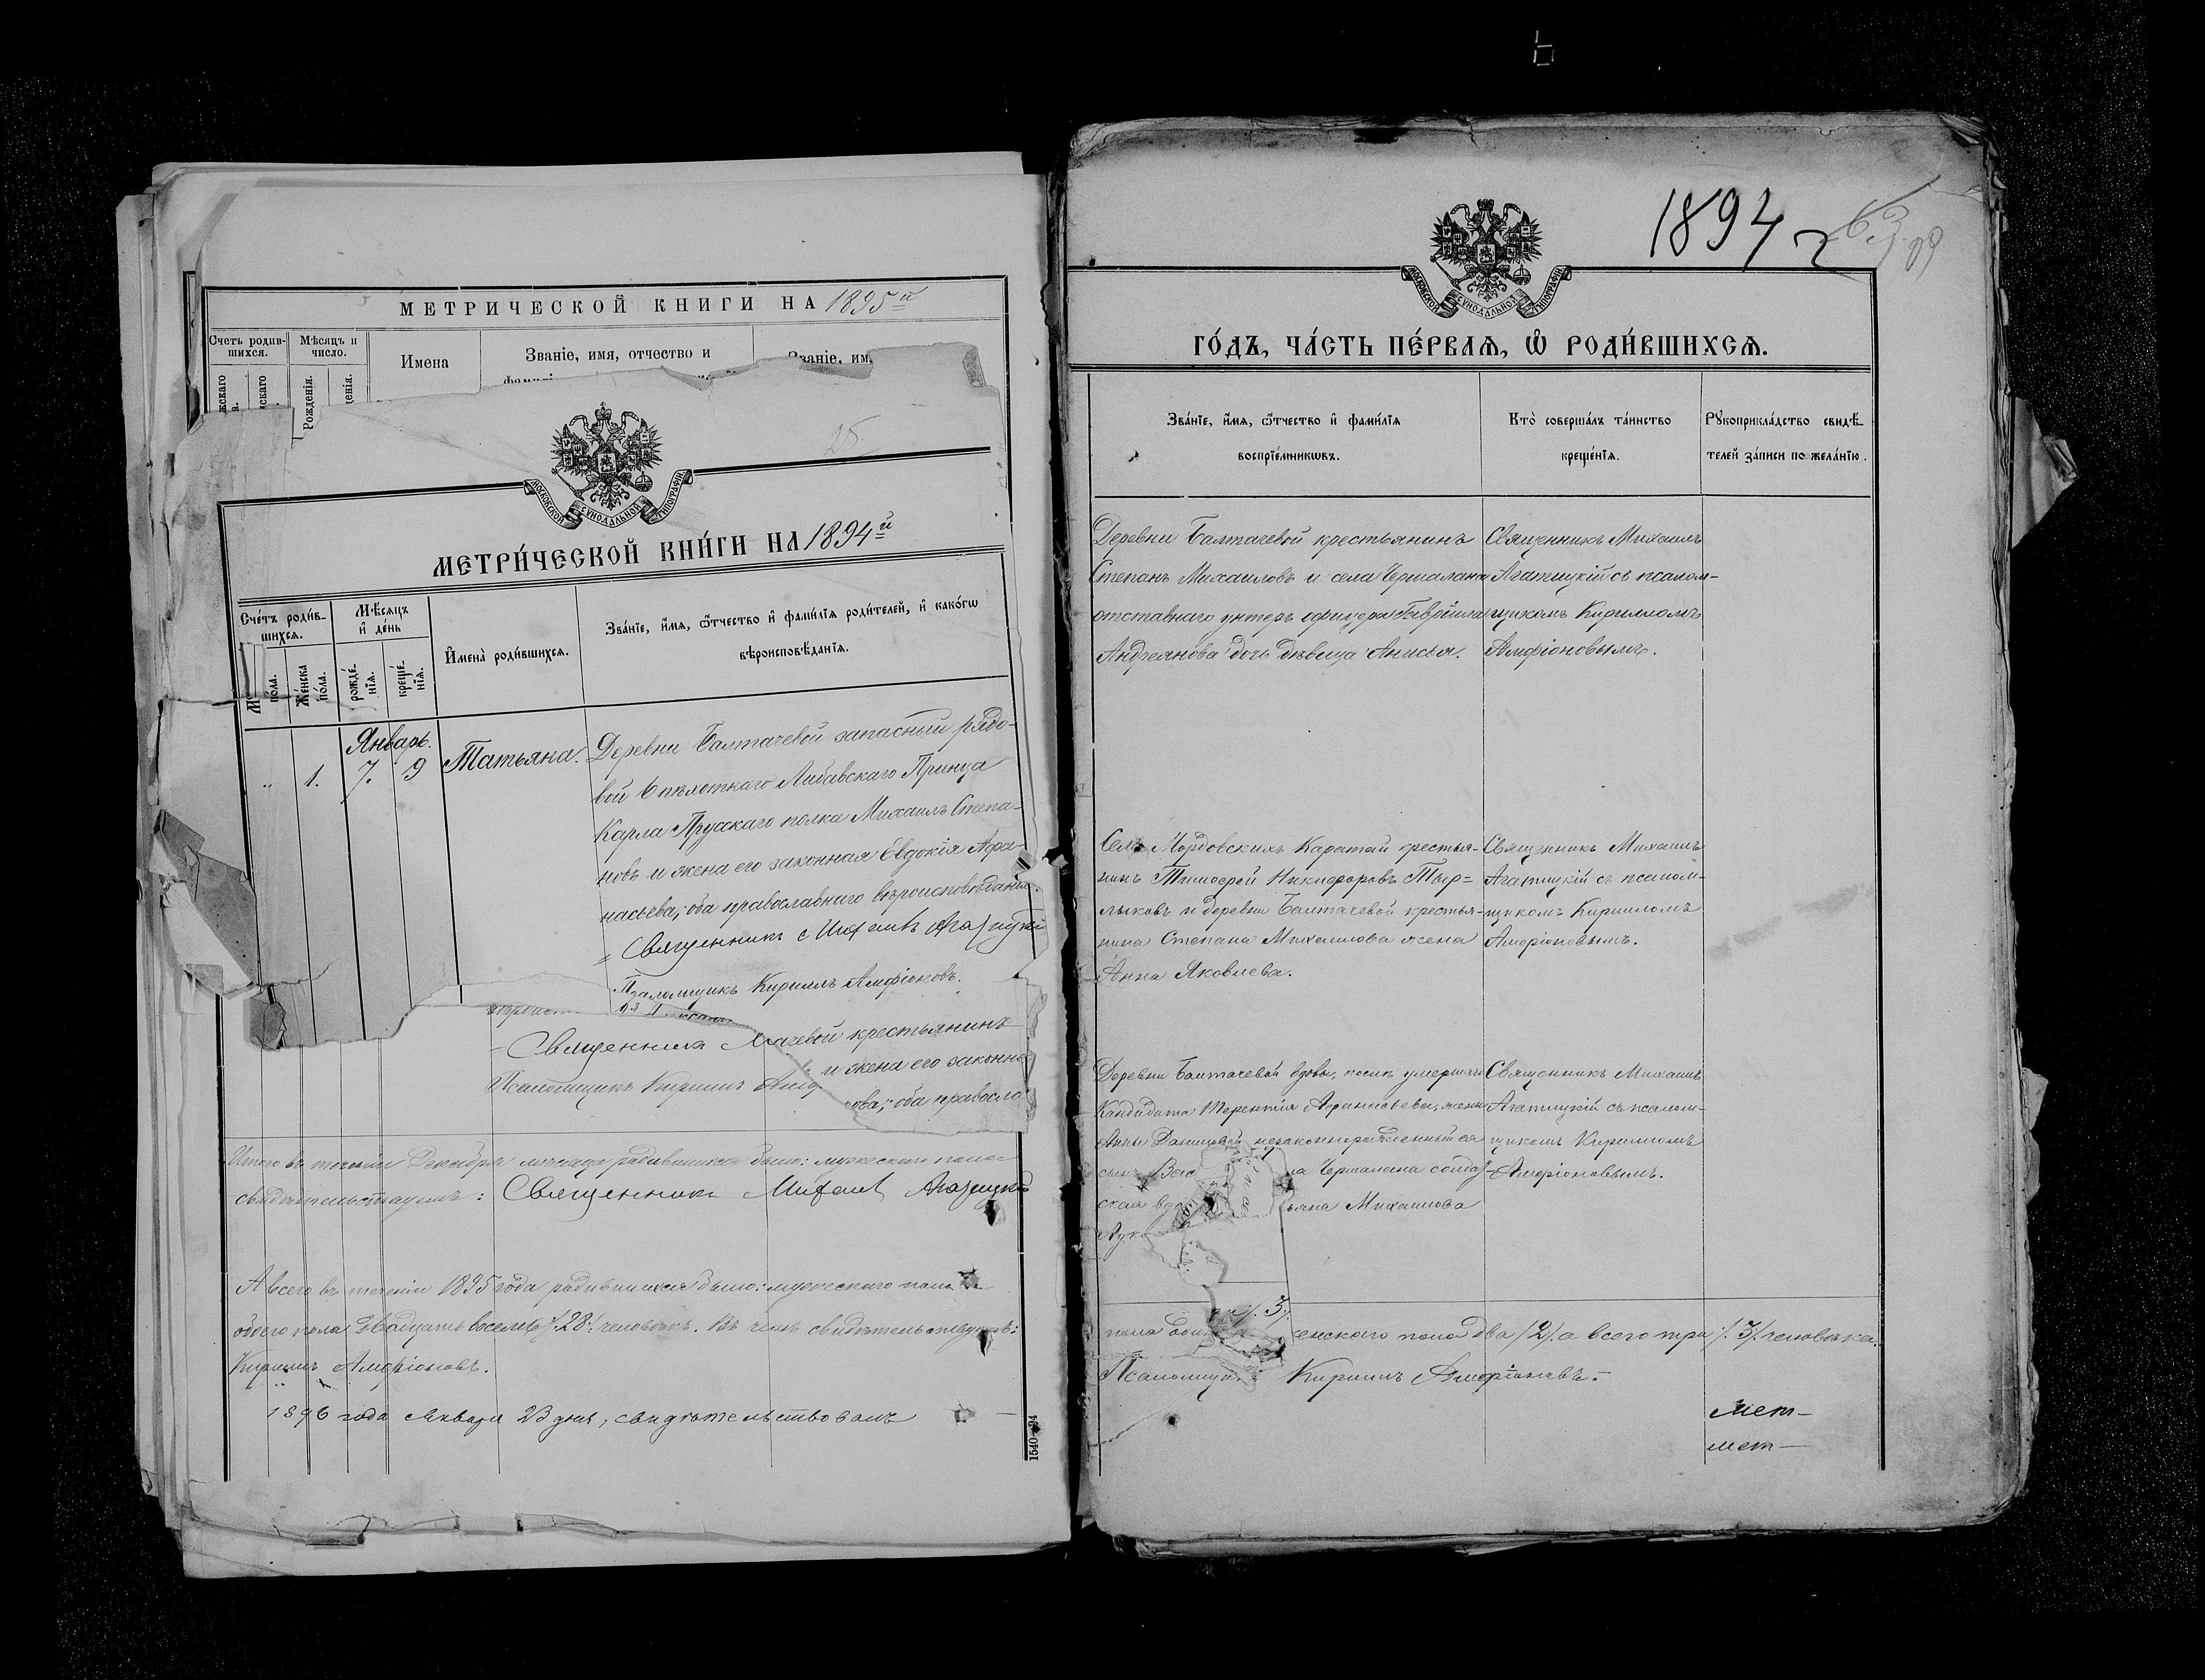 МЕТРИЧЕСКОЙ КНИГИ НА 1895й
Счетъ родив-
шихся.
Мѣсяцъ и
число.
Имена
Званіе, имя, отчество и
Званіе, им
Рожденія.
25
МОСКОВСКОЙ СУНОДАЛЬНОЙ ТИПОГРАФІИ
МЕТРИ́ЧЕСКОЙ КНИ́ГИ НА 1894й
Сче́тъ роди́в-
шихся.
Мѣ́сяцъ
и҆ де́нь
И҆мена̀ роди́вшихся.
Зва́нїе, и҆́мя, ѻ҆́тчество и҆ фами́лїя роди́телей, и҆ како́гѡ
вѣроисповѣ́данїя.
по́ла.
Же́нска
по́ла.
рожде́-
нїя.
креще́-
нїя.
Январь.
„ 1. 7. 9 Татьяна.
Деревни Балтачевой запасный рядо-
вой 6 пѣхотнаго Либавскаго Принца
Карла Прусскаго полка Михаилъ Степа-
новъ и жена его законная Евдокія Афа-
насьева; оба православнаго вѣроисповѣданія.
Священникъ Михаилъ Агатицкій
Псаломщикъ Кириллъ Амфіоновъ.
Священникъ
чевой крестьянинъ
и жена его законна
Псаломщикъ Кириллъ Амф
ова; оба правосла
Итого въ теченіи Декабря мѣсяца родившихся было: мужескаго пола
свидѣтельствуемъ: Священникъ Михаилъ Агатицкій
А всего въ теченіи 1895 года родившихся было: мужескаго пола
обоего пола двадцать восемь /.28./ человѣкъ. Въ чемъ свидѣтельствуемъ:
Кириллъ Амфіоновъ.
1896 года Января 23 дня, свидѣтельствовалъ
1540—94
1894
63
МОСКОВСКОЙ СУНОДАЛЬНОЙ ТИПОГРАФІИ
ГО́ДЪ, ЧА́СТЬ ПЕ́РВАЯ, Ѡ҆ РОДИ́ВШИХСЯ.
Зва́нїе, и҆́мя, ѻ҆́тчество и҆ фами́лїя
воспрїе́мникωвъ.
Кто̀ соверша́лъ та́инство
креще́нїя.
Рꙋкоприкла́дство свидѣ́-
телей за́писи по жела́нїю.
Деревни Балтачевой крестьянинъ
Степанъ Михаиловъ и села Чермалана
отставнаго унтеръ офицера Гавріила
Андреянова дочь дѣвица Анисья.
Священникъ Михаилъ
Агатицкій съ псалом-
щикомъ Кирилломъ
Амфіоновымъ.
Села Мордовскихъ Каратай крестья-
нинъ Тимофей Никифоровъ Тыр=
лыковъ и деревни Балтачевой крестья-
нина Степана Михаилова жена
Анна Яковлева.
Священникъ Михаилъ
Агатицкій съ псалом-
щикомъ Кирилломъ
Амфіоновымъ.
Деревни Балтачевой вдовы, послѣ умершаго
Кандидата Терентія Афанасьева, жены
Анны Даниловой незаконнорожденный ея
сынъ Вас ла Чермалана солдат-
ская вдо ьяна Михаилова
Священникъ Михаилъ
Агатицкій съ псалом-
щикомъ Кирилломъ
Амфіоновымъ.
пола один енскаго пола два /.2/. а всего три /. 3/. человѣка.
Псаломщи Кириллъ Амфіоновъ.
мет-
мет-